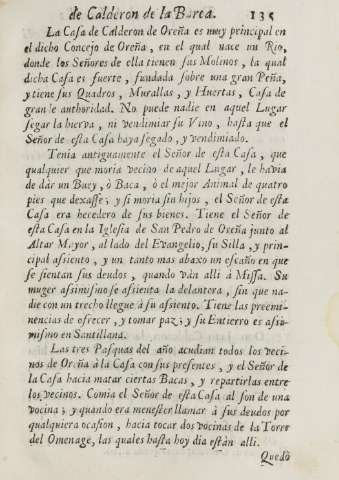 de Calderon de la Barca. 135
La Caſa de Calderon de Oreña es muy principal en
el dicho Concejo de Oreña, en el qual nace un Rio,
donde los Señores de ella tienen ſus Molinos, la qual
dicha Caſa es fuerte, fundada ſobre una gran Peña,
y tiene ſus Quadros, Murallas, y Huertas, Caſa de
grande authoridad. No puede nadie en aquel Lugar
ſegar la hierva, ni vendimiar ſu Vino, haſta que el
Señor de eſta Caſa haya ſegado, y vendimiado.
Tenia antiguamente el Señor de eſta Caſa, que
qualquier que moria vecino de aquel Lugar, le havia
de dár un Buey, ò Baca, ò el mejor Animal de quatro
pies que dexaſſe; y ſi moria ſin hijos, el Señor de eſta
Caſa era heredero de ſus bienes. Tiene el Señor de
eſta Caſa en la Igleſia de San Pedro de Oreña junto al
Altar Mayor, al lado del Evangelio, ſu Silla, y prin-
cipal aſsiento, y un tanto mas abaxo un eſcaño en que
ſe ſientan ſus deudos, quando ván alli à Miſſa. Su
muger aſsimiſmo ſe aſsienta la delantera, ſin que na-
die con un trecho llegue à ſu aſsiento. Tiene las preemi-
nencias de ofrecer, y tomar paz; y ſu Entierro es aſsi-
miſmo en Santillana.
Las tres Paſquas del año acudian todos los veci-
nos de Oreña à la Caſa con ſus preſentes, y el Señor de
la Caſa hacia matar ciertas Bacas, y repartirlas entre
los vecinos. Comia el Señor de eſta Caſa al ſon de una
vocina; y quando era meneſter llamar à ſus deudos por
qualquiera ocaſion, hacia tocar dos vocinas de la Torre
del Omenage, las quales haſta hoy dia eſtán alli.
Quedò